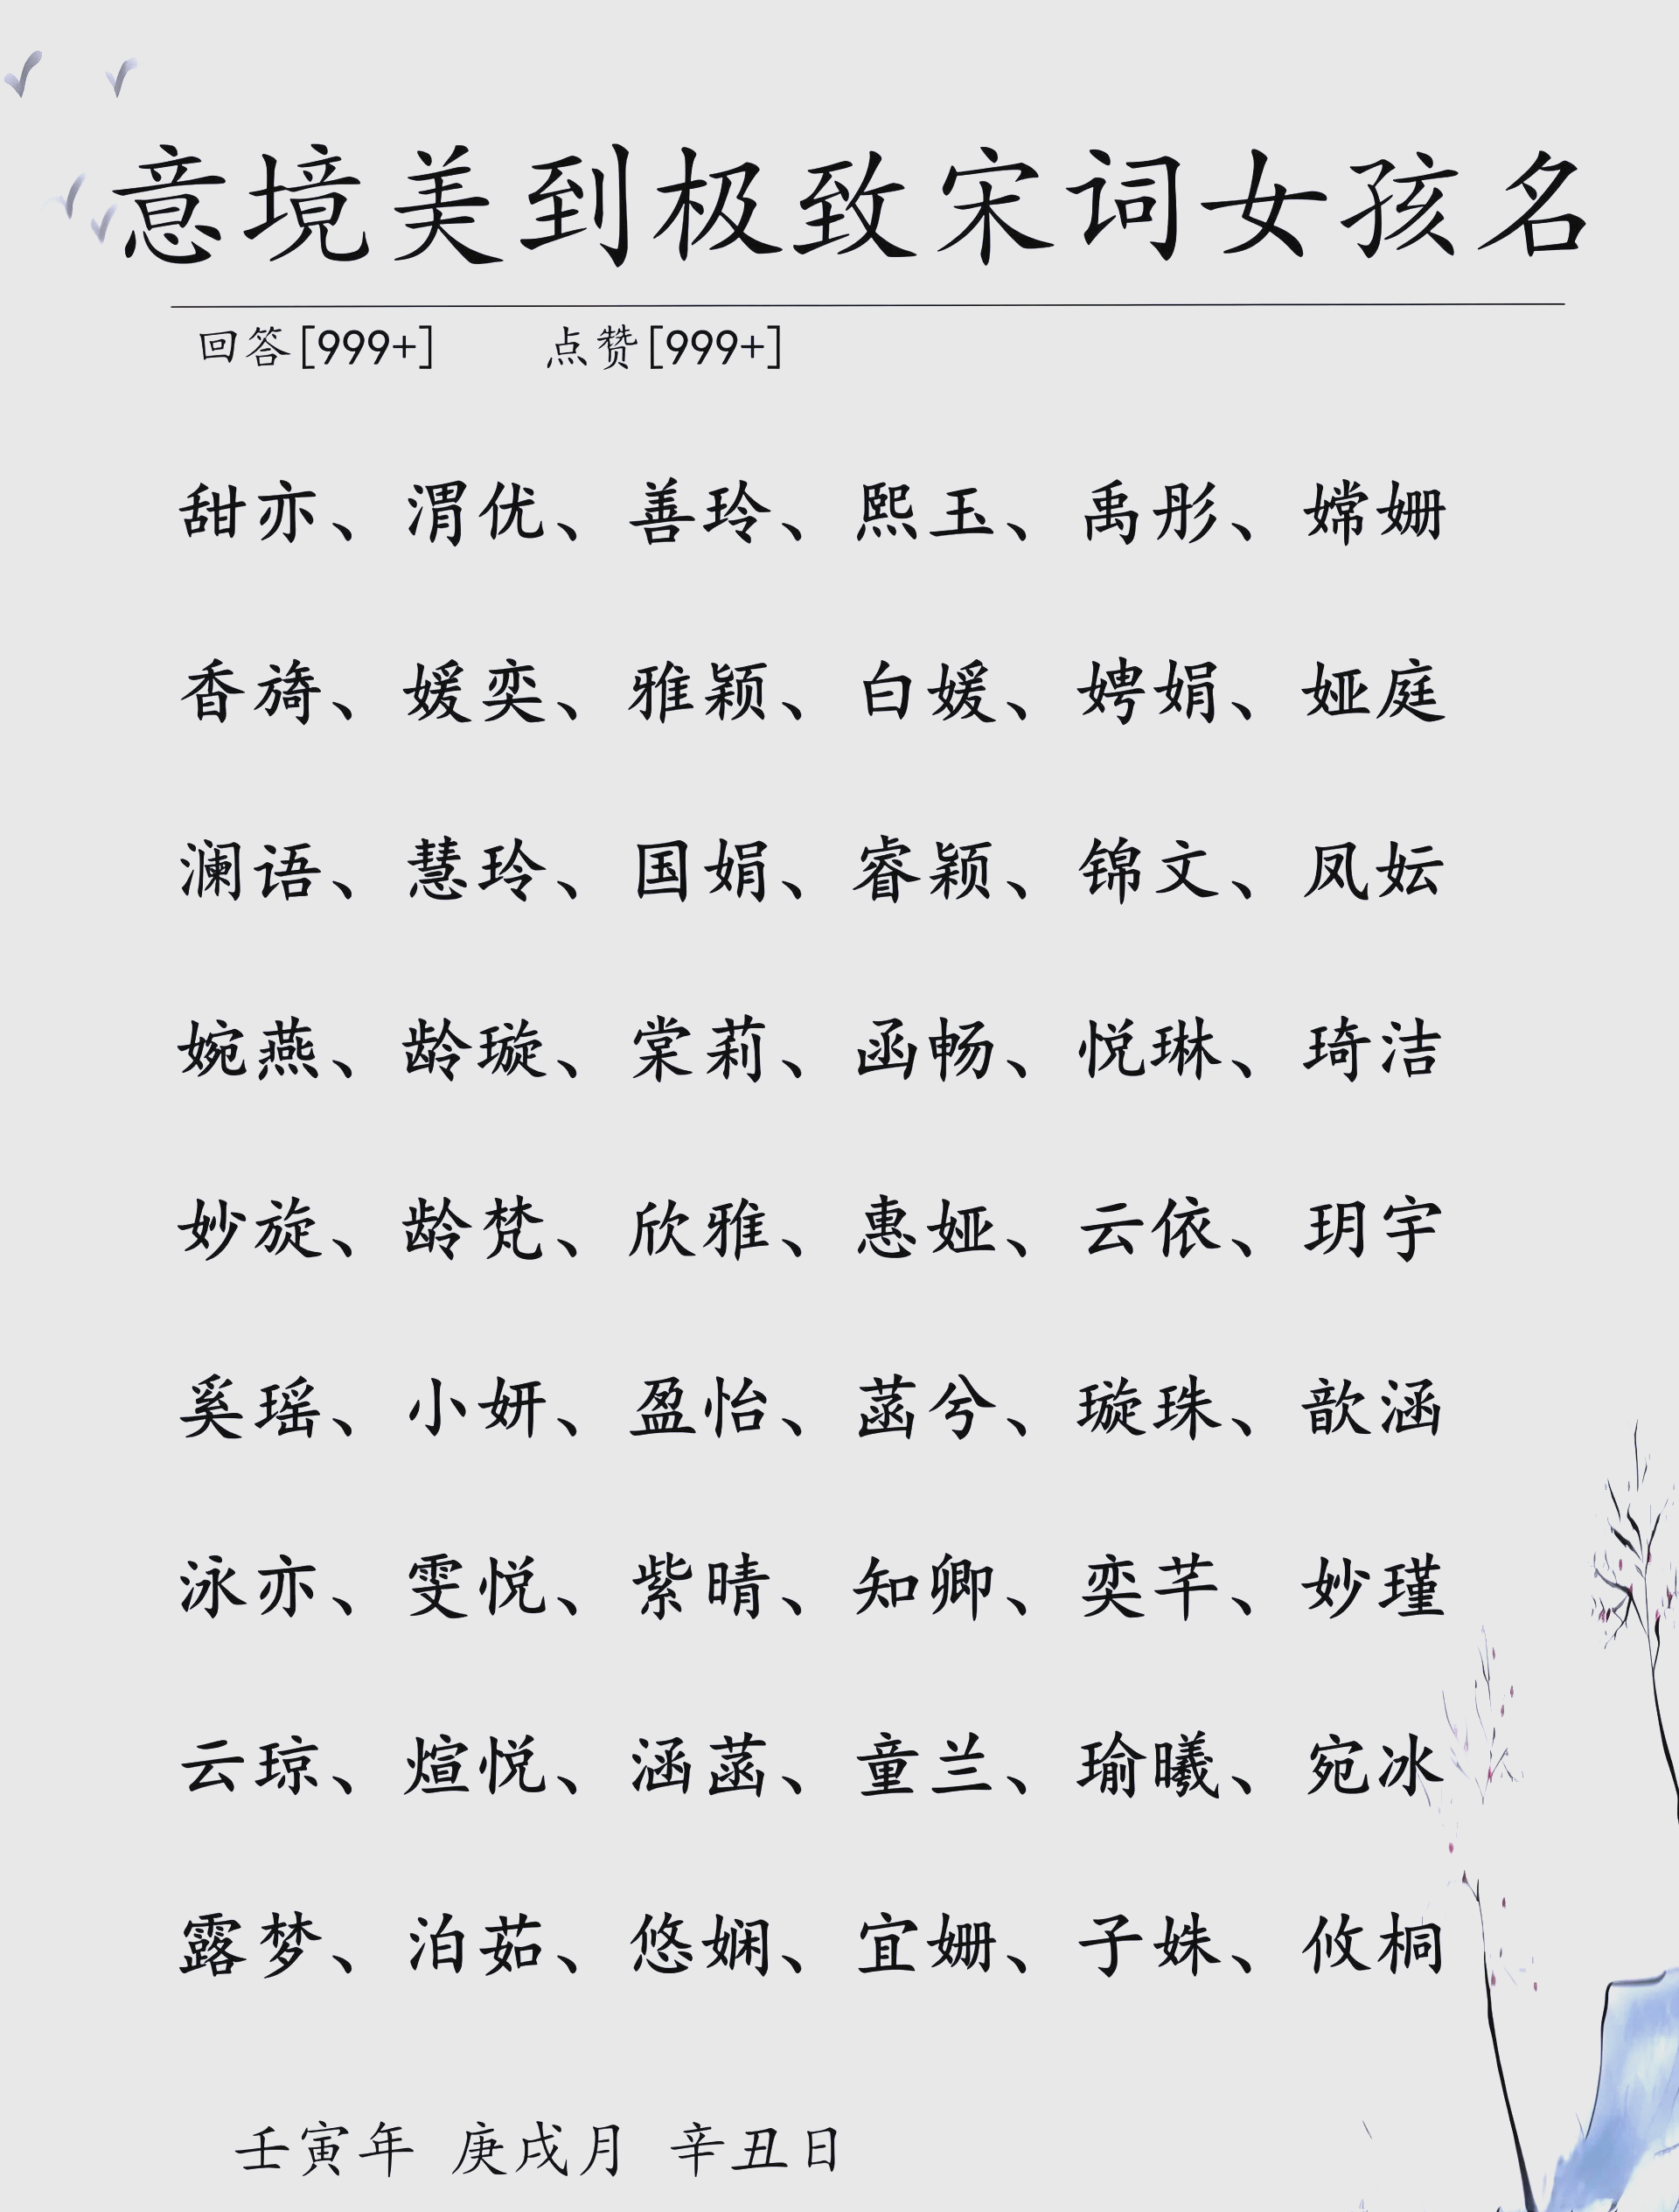 意境美到极致宋词女孩名
回答[999+] 点赞[999+]
甜亦、渭优、善玲、熙玉、禹彤、嫦姗
香旖、媛奕、雅颖、白媛、娉娟、娅庭
澜语、慧玲、国娟、睿颖、锦文、凤妘
婉燕、龄璇、棠莉、函畅、悦琳、琦洁
妙旋、龄梵、欣雅、惠娅、云依、玥宇
奚瑶、小妍、盈怡、菡兮、璇珠、歆涵
泳亦、雯悦、紫晴、知卿、奕芊、妙瑾
云琼、煊悦、涵菡、童兰、瑜曦、宛冰
露梦、泊茹、悠娴、宜姗、子姝、攸桐
壬寅年 庚戌月 辛丑日